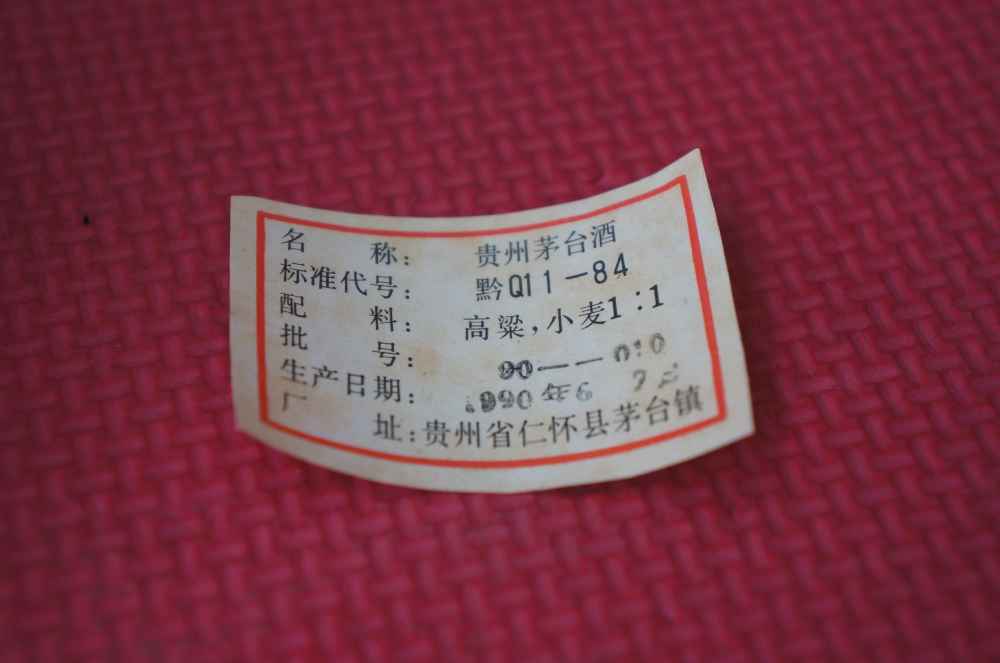 名　称：贵州茅台酒
标准代号：黔Q11－84
配　料：高粱，小麦1：1
批　号：90——010
生产日期：.990年6
厂　址：贵州省仁怀县茅台镇